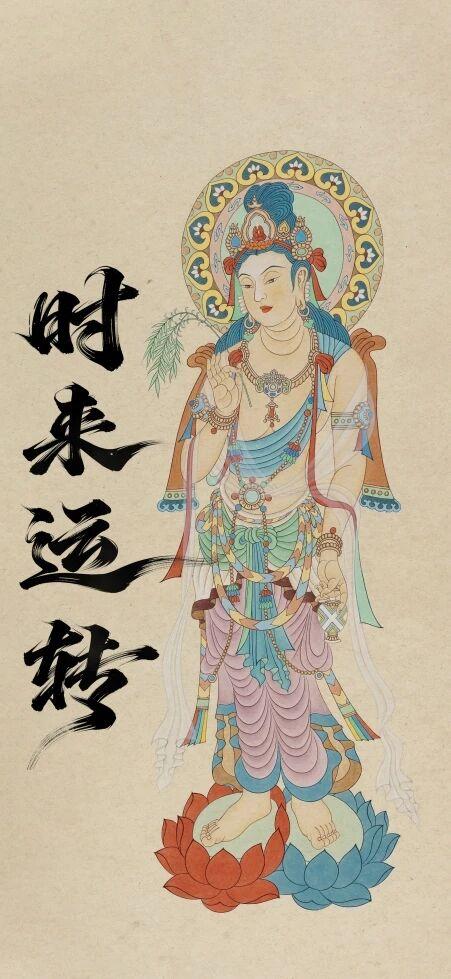 时来运转